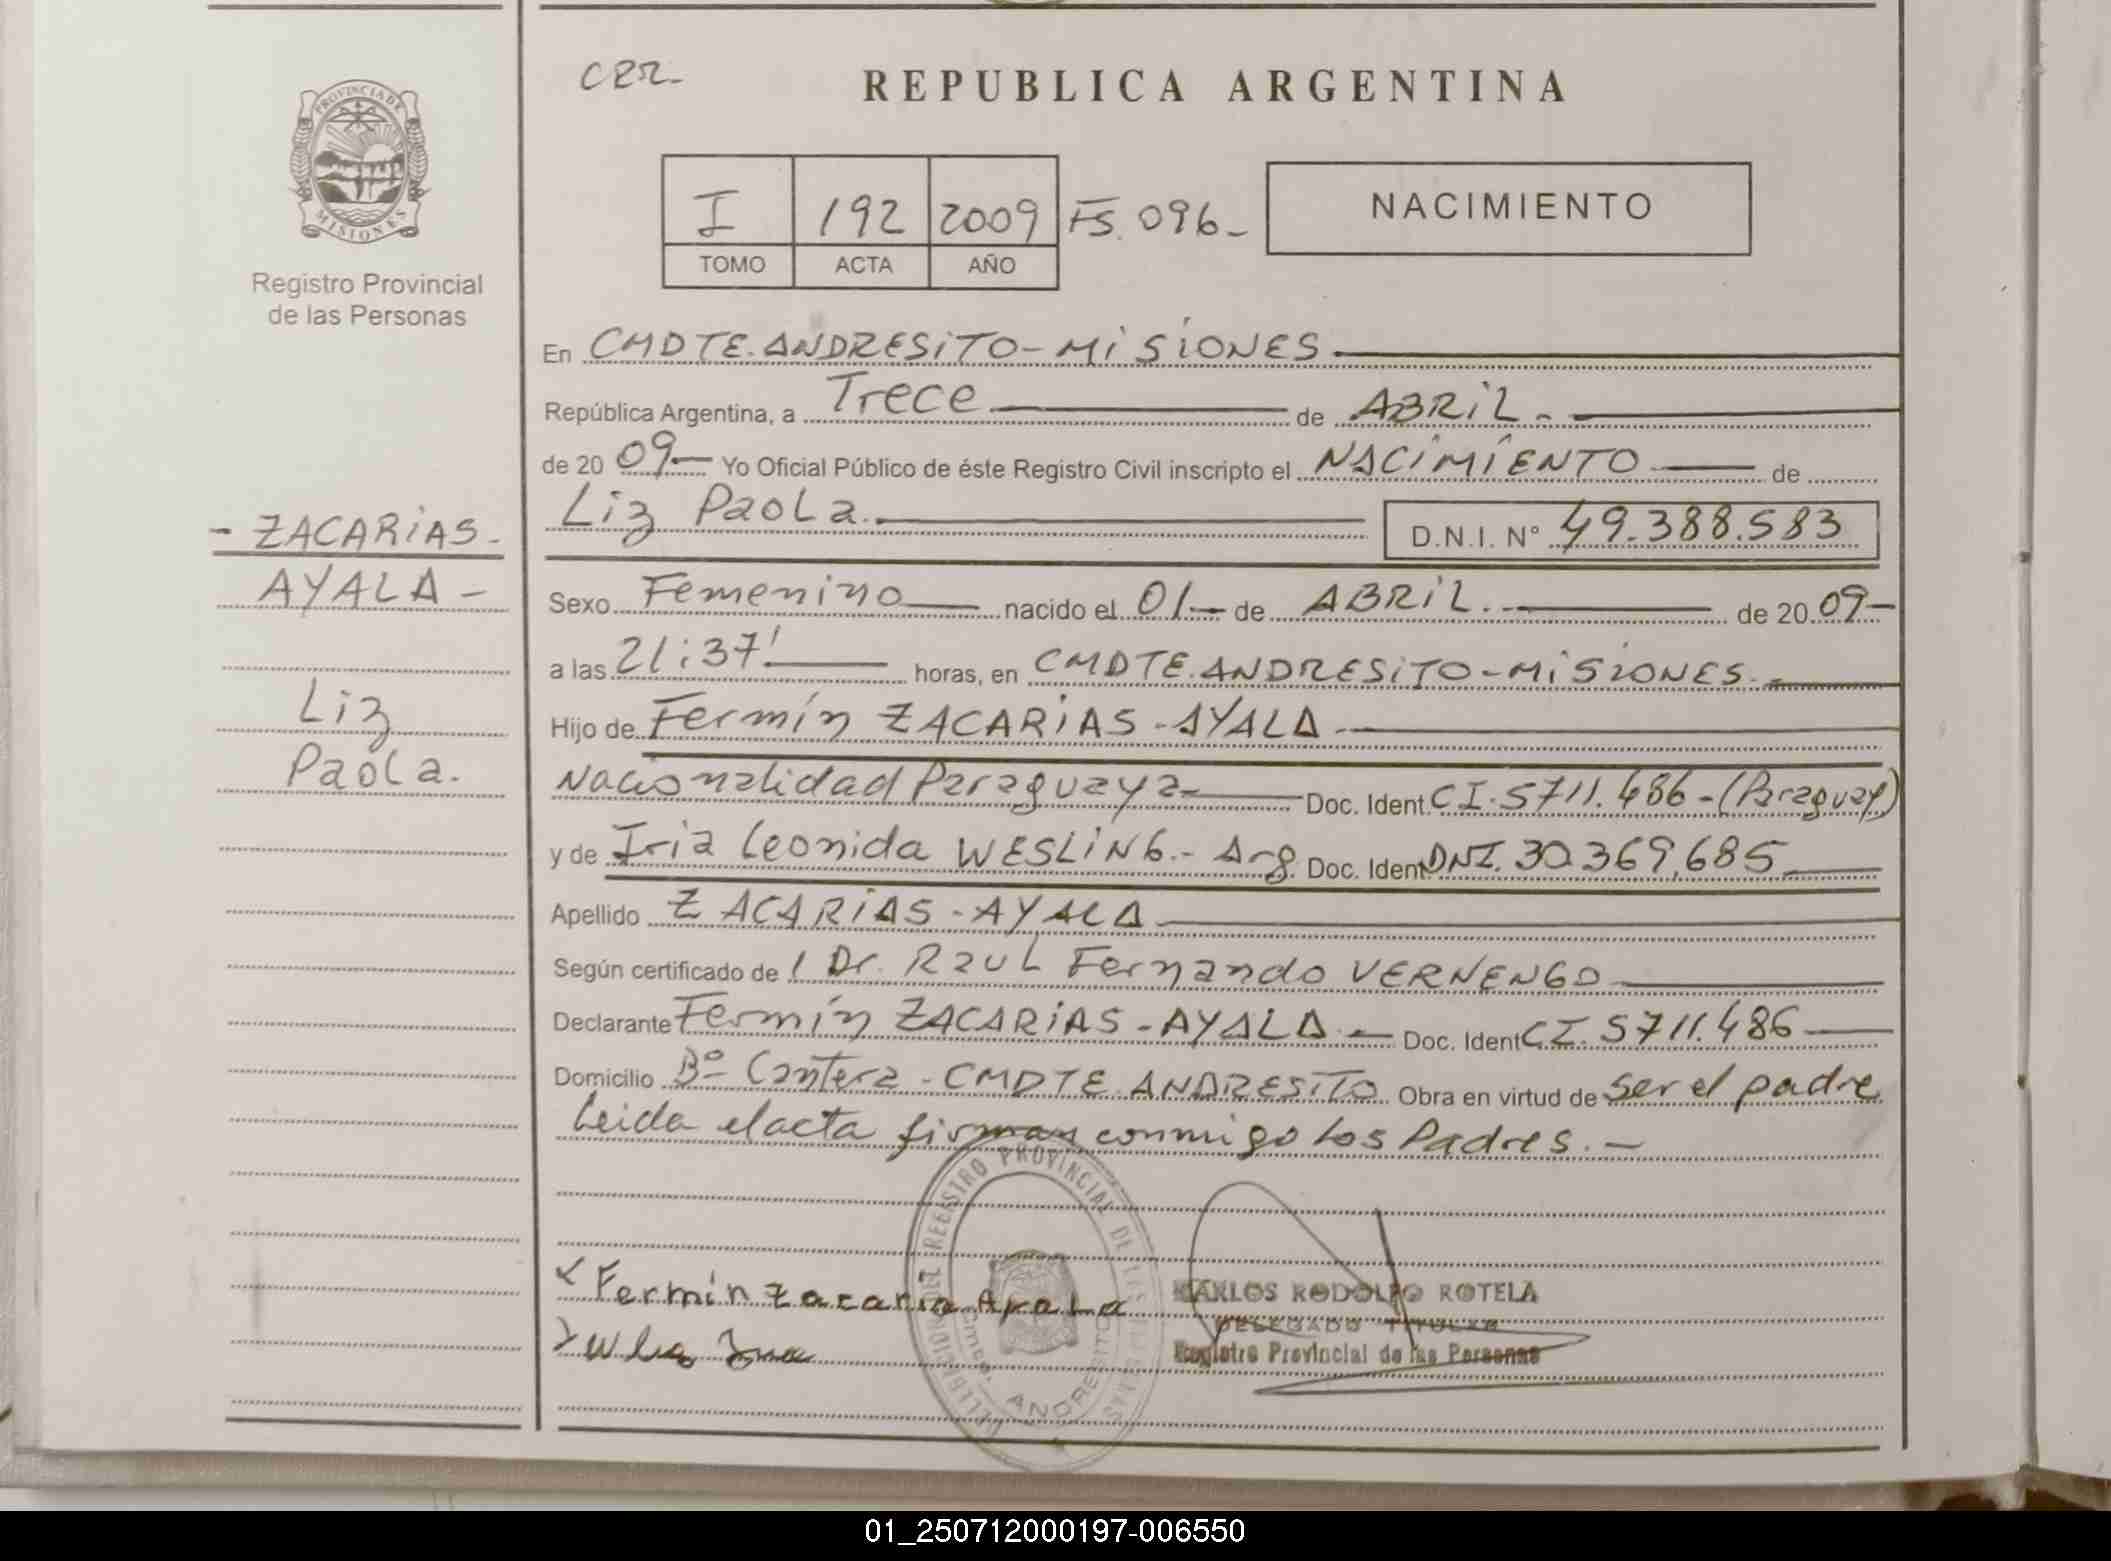 CRR-
REPUBLICA ARGENTINA
PROVINCIA DE
MISIONES
Registro Provincial
de las Personas
I 192 2009 FS. 096-
TOMO ACTA AÑO
NACIMIENTO
En CMDTE. ANDRESiTO-MiSiONES
República Argentina, a Trece de ABRiL.-
de 20 09.- Yo Oficial Público de éste Registro Civil inscripto el NACiMiENTO de
Liz Paola. D.N.I. Nº 49.388.583
- ZACARiAS-
AYALA-
Liz
Paola.
Sexo Femenino nacido el 01.- de ABRiL. de 20 09-
a las 21:37' horas, en CMDTE. ANDRESiTO-MiSiONES.
Hijo de Fermín ZACARiAS-AYALA
Nacionalidad Paraguaya Doc. Ident. CI. 5711.486-(Paraguay)
y de Iria Leonida WESLiNG.- Arg. Doc. Ident DNI. 30.369.685
Apellido ZACARiAS-AYALA
Según certificado de Dr. Raul Fernando VERNENGO
Declarante Fermín ZACARiAS-AYALA.- Doc. Ident CI. 5711.486
Domicilio Bº Cantera-CMDTE. ANDRESiTO Obra en virtud de ser el padre
Leida el acta firman conmigo los Padres.-
Fermín Zacaria Ayala
CARLOS RODOLFO ROTELA
DELEGADO TITULAR
Registro Provincial de las Personas
DEL REGISTRO PROVINCIAL DE LAS PERSONAS
ANDRESITO
01_250712000197-006550